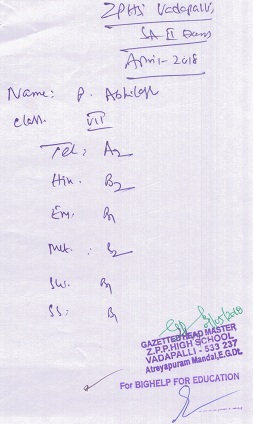 ZPHS Vadapalli
SA II Exams
April-2018
Name: P. Abhilash
Class: VII
Tel: A2
Hin. B2
En. B1
Mat. : B2
Sci. B1
SS: B1
GAZETTED HEAD MASTER
Z.P.P.HIGH SCHOOL
VADAPALLI - 533 237
Atreyapuram Mandal, E.G.Dt.
For BIGHELP FOR EDUCATION